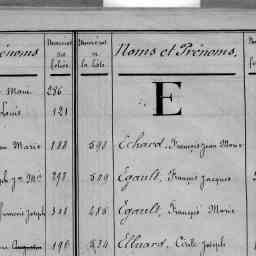 Prénoms | Numéros du folio | Numéros de la liste | Noms et Prénoms.
Marie | 286
E
Louis | 121
Marie | 188 | 593 | Echard, François Jean Marie
298 | 509 | Egault, François Jacques
Joseph | 318 | 285 | Egault, François Marie
196 | 534 | Elluard, Cécile Joseph